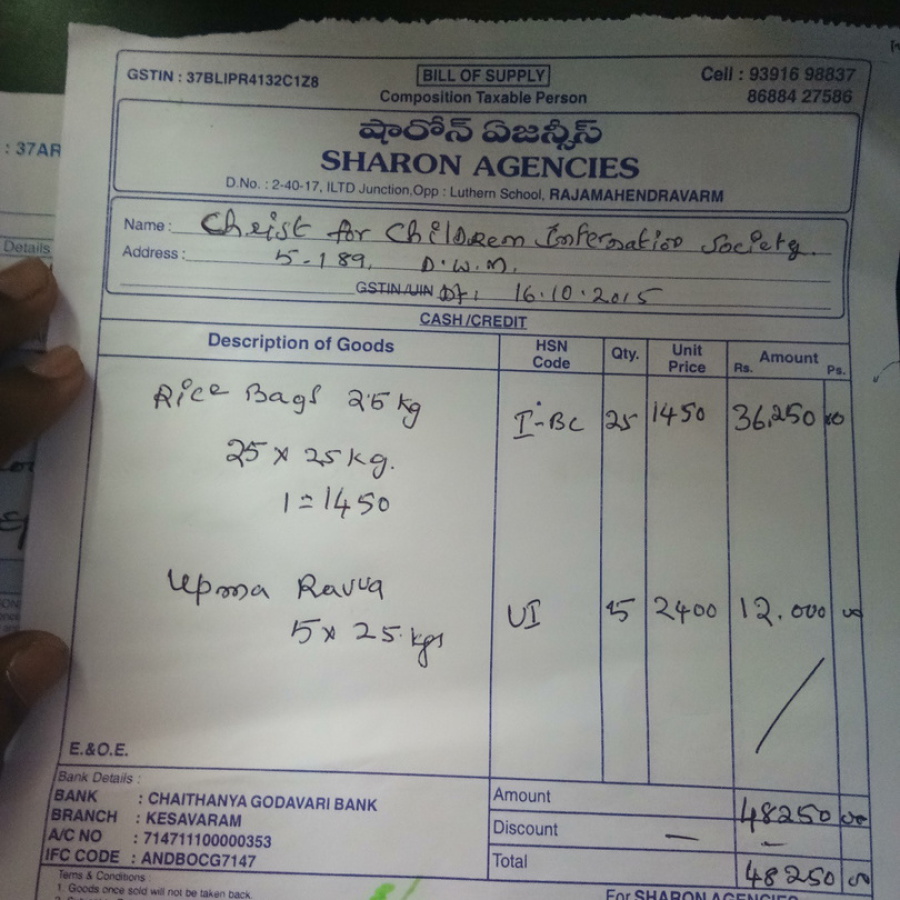 GSTIN : 37BLIPR4132C1Z8
BILL OF SUPPLY
Cell : 93916 98837
Composition Taxable Person
86884 27586
షారోన్ ఏజన్సీస్
SHARON AGENCIES
D.No. : 2-40-17, ILTD Junction,Opp : Luthern School, RAJAMAHENDRAVARM
: 37AR
Name : Christ for Children Internation Society.
Details
Address : 5-189, D.W.M.
GSTIN/UIN Dt: 16.10.2015
CASH/CREDIT
Description of Goods HSN Code Qty. Unit Price Amount Rs. Ps.
Rice Bags 25 kg I-BC 25 1450 36,250 00
25 x 25 kg.
1 = 1450
Upma Ravva UI 5 2400 12.000 00
5 x 25.kgs
E.&O.E.
Bank Details :
BANK : CHAITHANYA GODAVARI BANK
BRANCH : KESAVARAM
A/C NO : 714711100000353
IFC CODE : ANDBOCG7147
Amount 48250 00
Discount — -
Total 48250 00
Terms & Conditions :
1. Goods once sold will not be taken back.
For SHARON AGENCIES